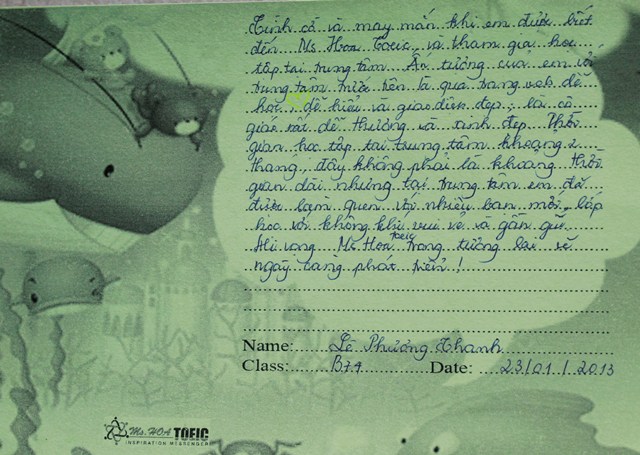 Tình cờ và may mắn khi em được biết
đến Ms Hoa Toeic và tham gia học
tập tại trung tâm. Ấn tượng của em với
trung tâm trước tiên là qua trang web dễ
học, dễ hiểu và giao diện đẹp; là cô
giáo rất dễ thương và xinh đẹp. Thời
gian học tập tại trung tâm khoảng 2
tháng, đây không phải là khoảng thời
gian dài nhưng tại trung tâm em đã
được làm quen với nhiều bạn mới, lớp
học với không khí vui vẻ và gần gũi.
Hi vọng Ms Hoa Toeic trong tương lai sẽ
ngày càng phát triển!
Name: Lê Phương Thanh
Class: B74 Date: 23/01/2013
Ms. HOA TOEIC
INSPIRATION MESSENGER